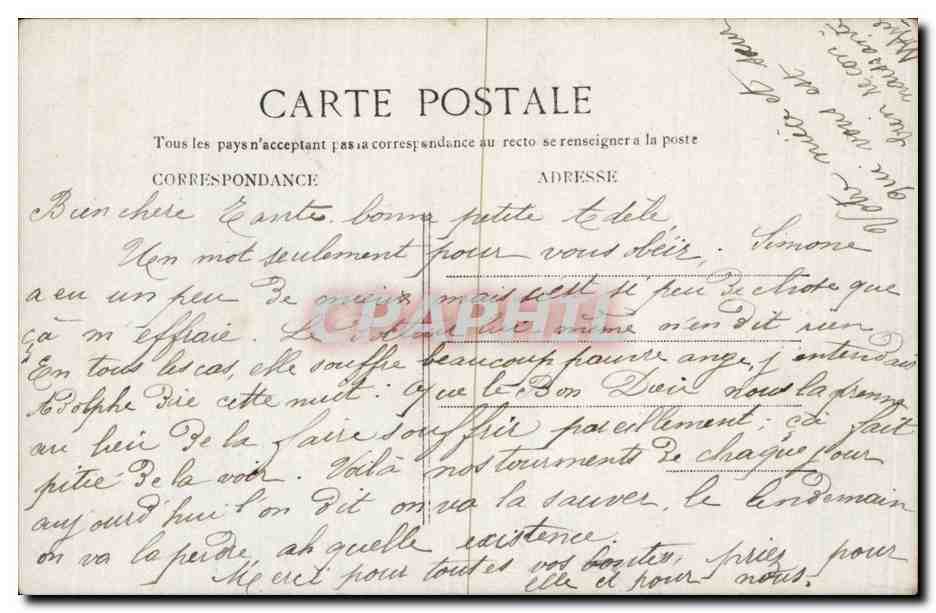 CARTE POSTALE
Tous les pays n'acceptant pas la correspondance au recto se renseigner a la poste
CORRESPONDANCE
ADRESSE
Bien chère Tante, bonne petite Adèle
Un mot seulement pour vous obéir, Simone
a eu un peu de mieux mais c'est si peu de chose que
çà m'effraie. Le lui même n'en dit rien
En tous les cas, elle souffre beaucoup pauvre ange, j'entendais
Adolphe dire cette nuit : que le Bon Dieu nous la prenne
au lieu de la faire souffrir pareillement ; çà fait
pitié de la voir. Voilà nos tourments de chaque jour
aujourd'hui l'on dit on va la sauver, le lendemain
on va la perdre ah quelle existence.
Merci pour toutes vos bontés, priez pour
elle et pour nous.
Votre nièce et sœur
qui vous est
bien recon
naissante
CPAPHIL